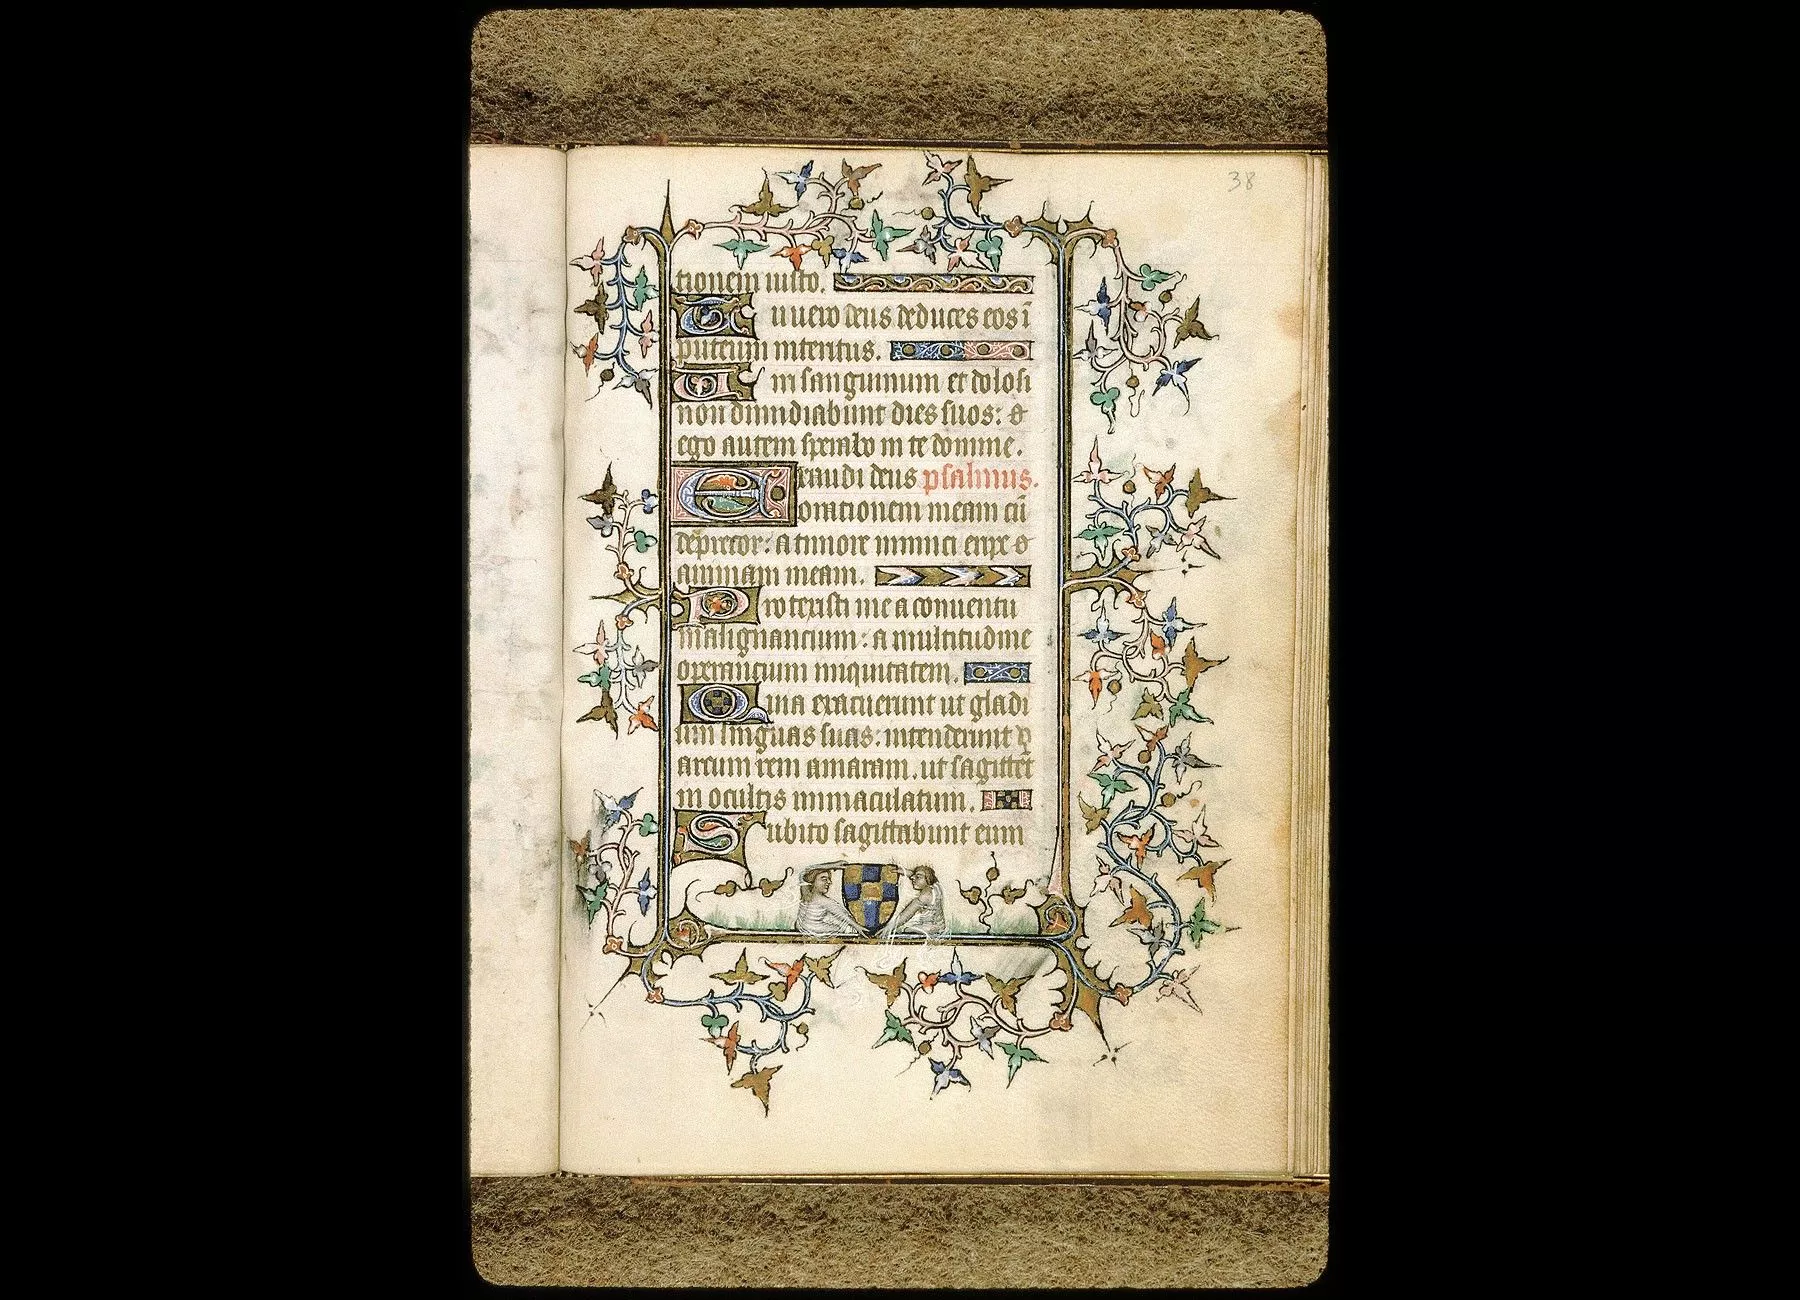 38
tionem iusto.
Tu uero deus deduces eos ī
puteum interitus.
Uiri sanguinum et dolosi
non dimidiabunt dies suos: &
ego autem sperabo in te domine.
Exaudi deus psalmus.
orationem meam cū
deprecor: a timore inimici eripe &
animam meam.
Protexisti me a conuentu
malignancium: a multitudine
operancium iniquitatem.
Quia exacuerunt ut gladi
um linguas suas: intenderunt
arcum rem amaram. ut sagittēt
in ocultis immaculatum.
Subito sagittabunt eum